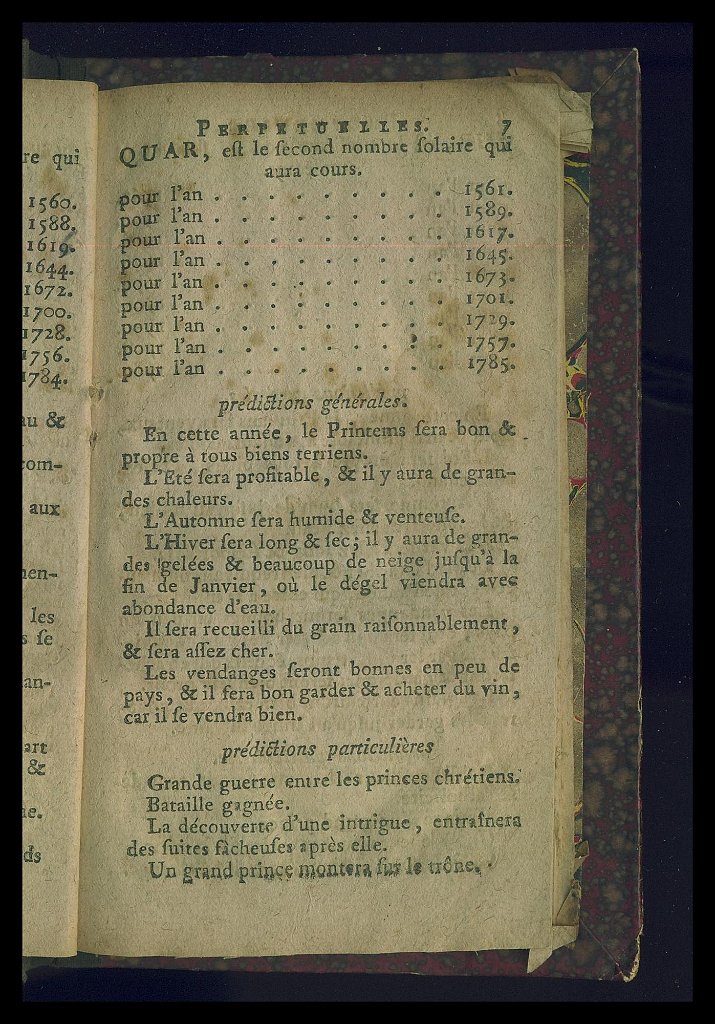 re qui
1560.
1588.
1619.
1644.
1672.
1700.
1728.
1756.
1784.
au &
com-
aux
en-
les
s se
an-
art
&
ne.
ds
PERPETUELLES. 7
QUAR, eſt le ſecond nombre ſolaire qui
aura cours.
pour l'an . . . . . . . . . 1561.
pour l'an . . . . . . . . . 1589.
pour l'an . . . . . . . . . 1617.
pour l'an . . . . . . . . . 1645.
pour l'an . . . . . . . . . 1673.
pour l'an . . . . . . . . . 1701.
pour l'an . . . . . . . . . 1729.
pour l'an . . . . . . . . . 1757.
pour l'an . . . . . . . . . 1785.
prédictions générales.
En cette année, le Printems ſera bon &
propre à tous biens terriens.
L'Eté ſera profitable, & il y aura de gran-
des chaleurs.
L'Automne ſera humide & venteuſe.
L'Hiver ſera long & ſec; il y aura de gran-
des gelées & beaucoup de neige juſqu'à la
fin de Janvier, où le dégel viendra avec
abondance d'eau.
Il ſera recueilli du grain raiſonnablement,
& ſera aſſez cher.
Les vendanges ſeront bonnes en peu de
pays, & il ſera bon garder & acheter du vin,
car il ſe vendra bien.
prédictions particulières
Grande guerre entre les princes chrétiens.
Bataille gagnée.
La découverte d'une intrigue, entraſnera
des ſuites fâcheuſes après elle.
Un grand prince montera ſur le trône.